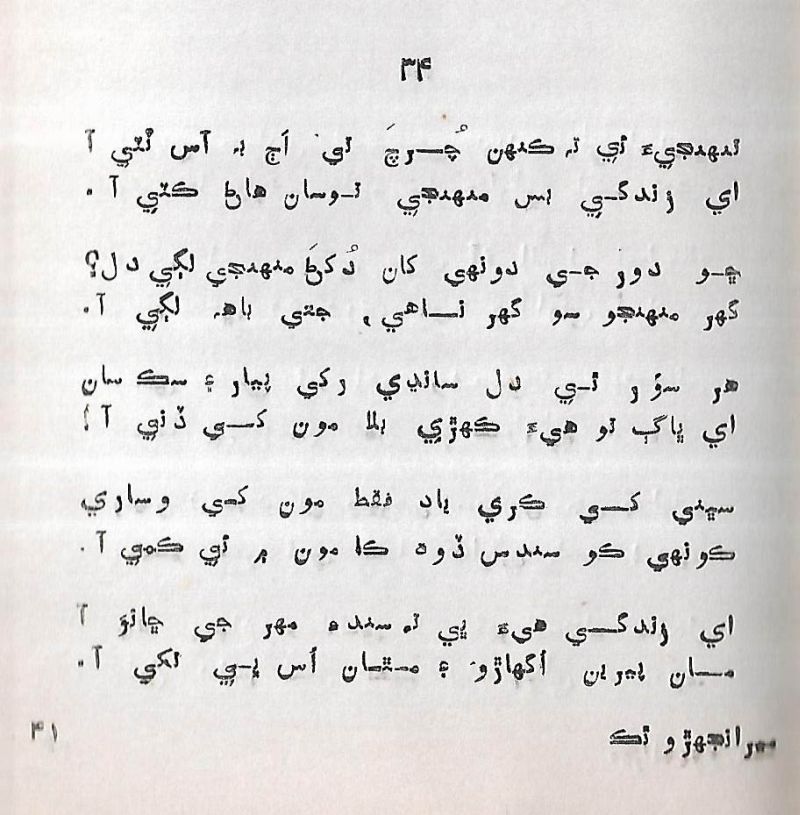 ۳۴
تنهنجيءَ ئي تہ ڪنهن چُرچَ تي، اَڄ بہ آس تُٽي آ
اي زندگي بس منهنجي توسان هاڻ ڪٽي آ.
ڇو دور جي دونهي کان دُکڻَ منهنجي لڳي دل؟
گهر منهنجو سو گهر ناهي، جتي باهہ لڳي آ.
هر سوُر ئي دل سانڍي رکي پيار ۽ سڪ سان
اي ڀاڳ تو هيءَ ڪهڙي بلا مون کي ڏني آ!
سڀني کي ڪري ياد فقط مون کي وساري
ڪونهي ڪو سندس ڏوهہ ڪا مون ۾ ئي ڪمي آ.
اي زندگي هيءَ ڀي تہ سندءِ مهر جي ڇانوَ آ
مان پيرين اگهاڙو ۽ مٿان اُس پي تکي آ.
انجهڙو ٿڪ
۴۱